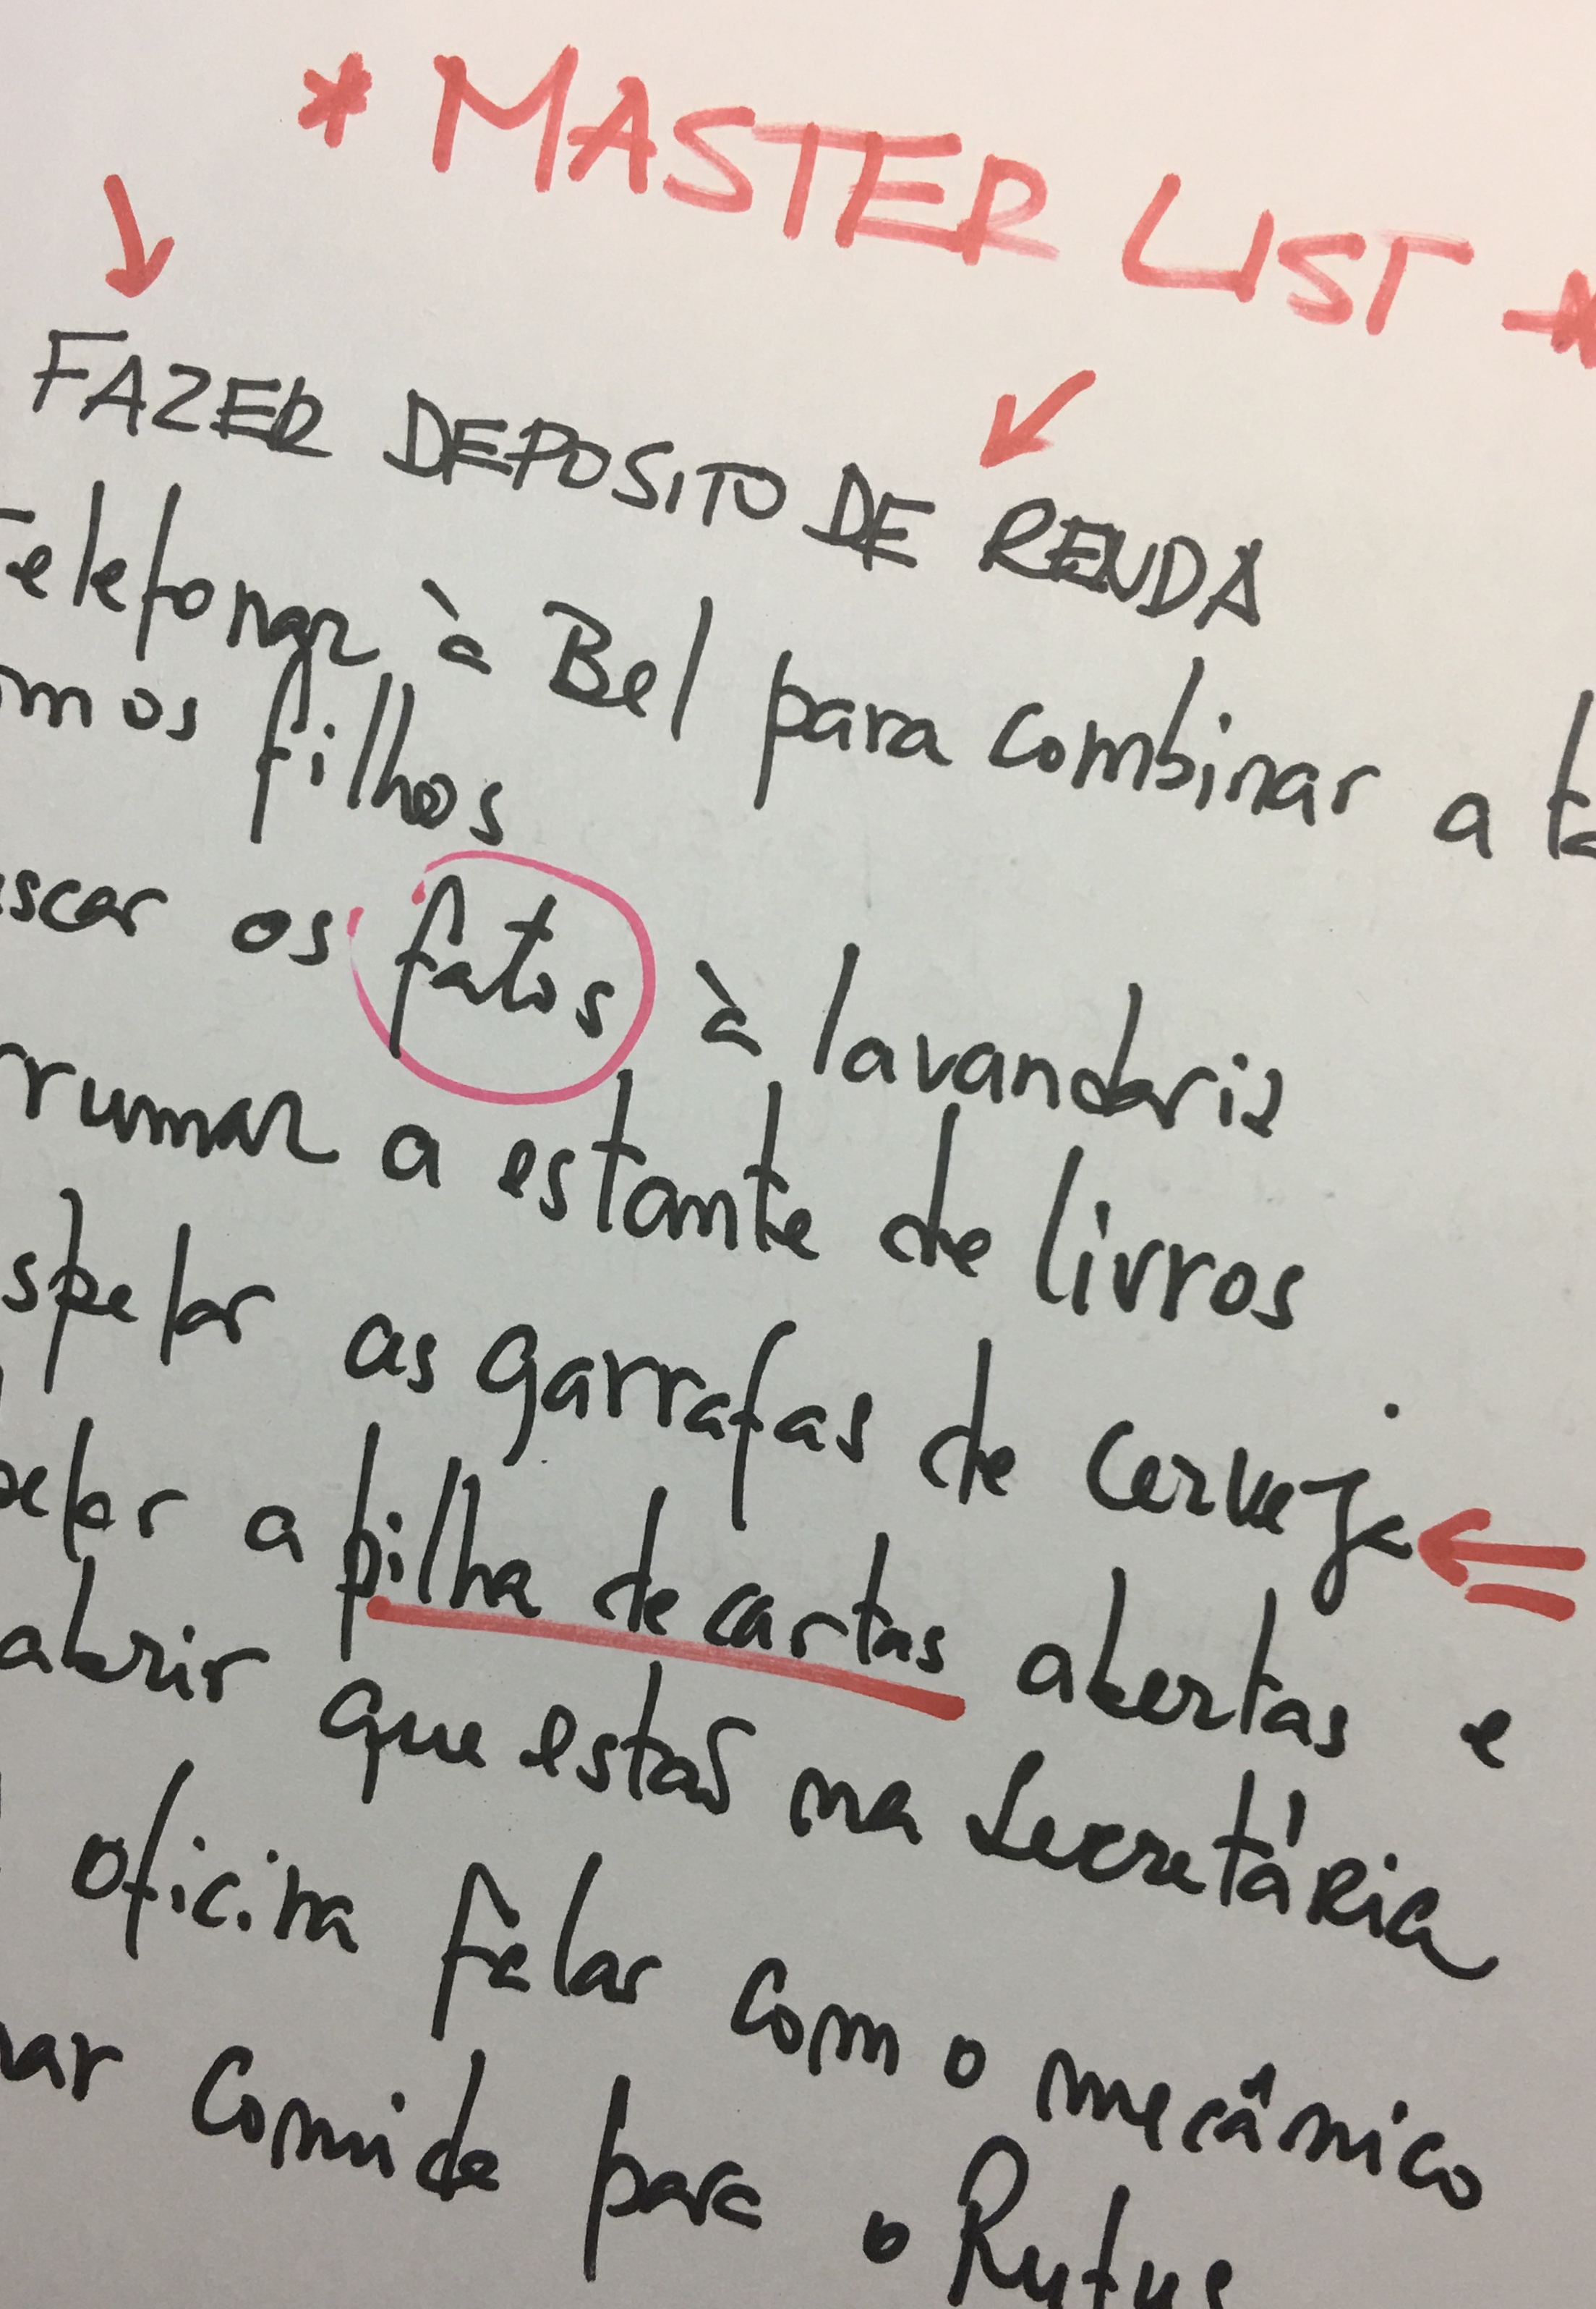 * MASTER LIST *
FAZER DEPOSITO DE RENDA
Telefonar à Bel para combinar a ta
mos filhos
scar os fatos à lavandaria
rrumar a estante de livros
spelar as garrafas de cerveja
pelar a pilha de cartas abertas e
abrir que estão na secretária
oficina falar com o mecânico
nar comida para o Rufus